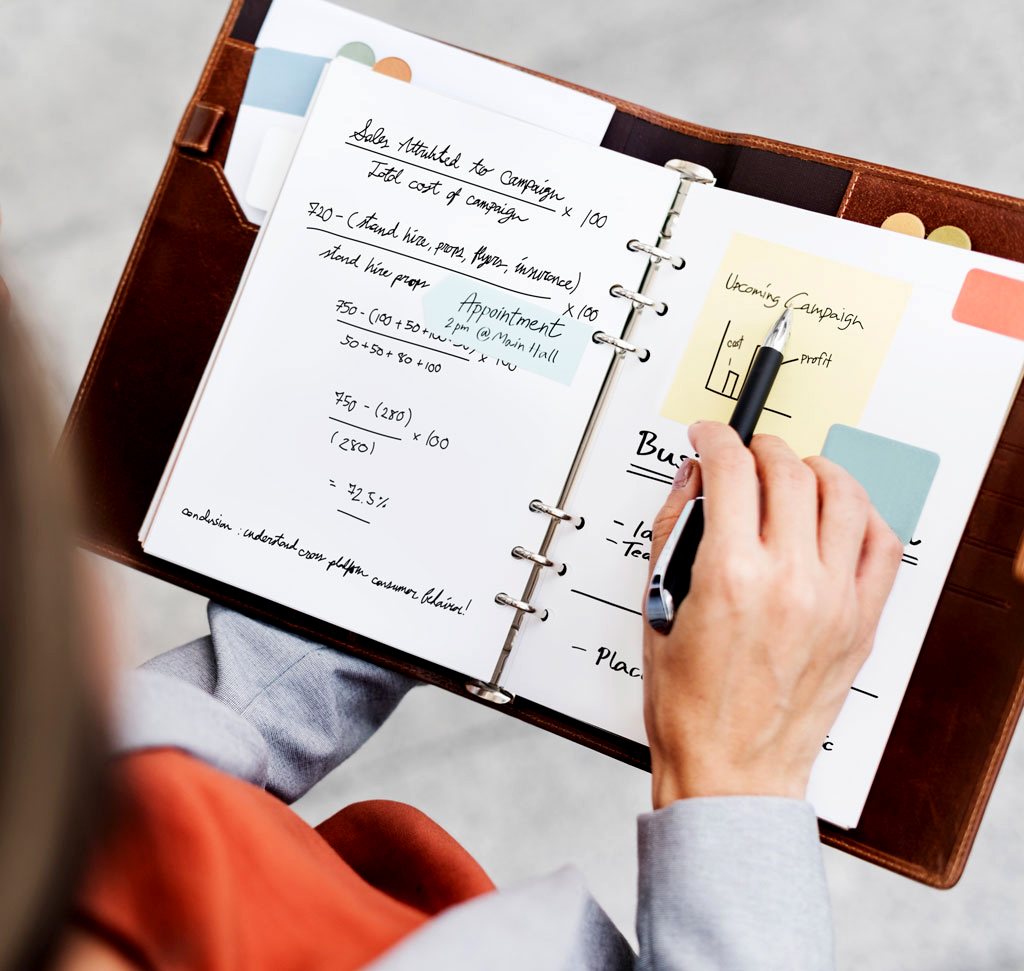 Sales Attributed to Campaign
Total cost of campaign
x 100
720 - (stand hire, props, flyers, insurance)
stand hire props
x 100
Appointment
2 pm @ Main Hall
750 - (100 + 50 +
x 100
50 + 50 + 80 + 100
750 - (280)
(280)
x 100
= 72.5%
conclusion : understand cross platform consumer behavior!
Upcoming Campaign
cost
profit
Bus
-
- Tea
- Plac